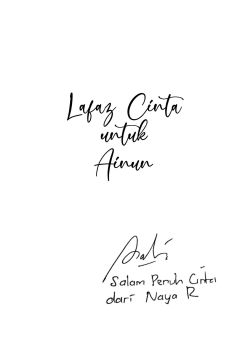 Lafaz Cinta
untuk
Ainun
Salam Penuh Cinta
dari Naya R